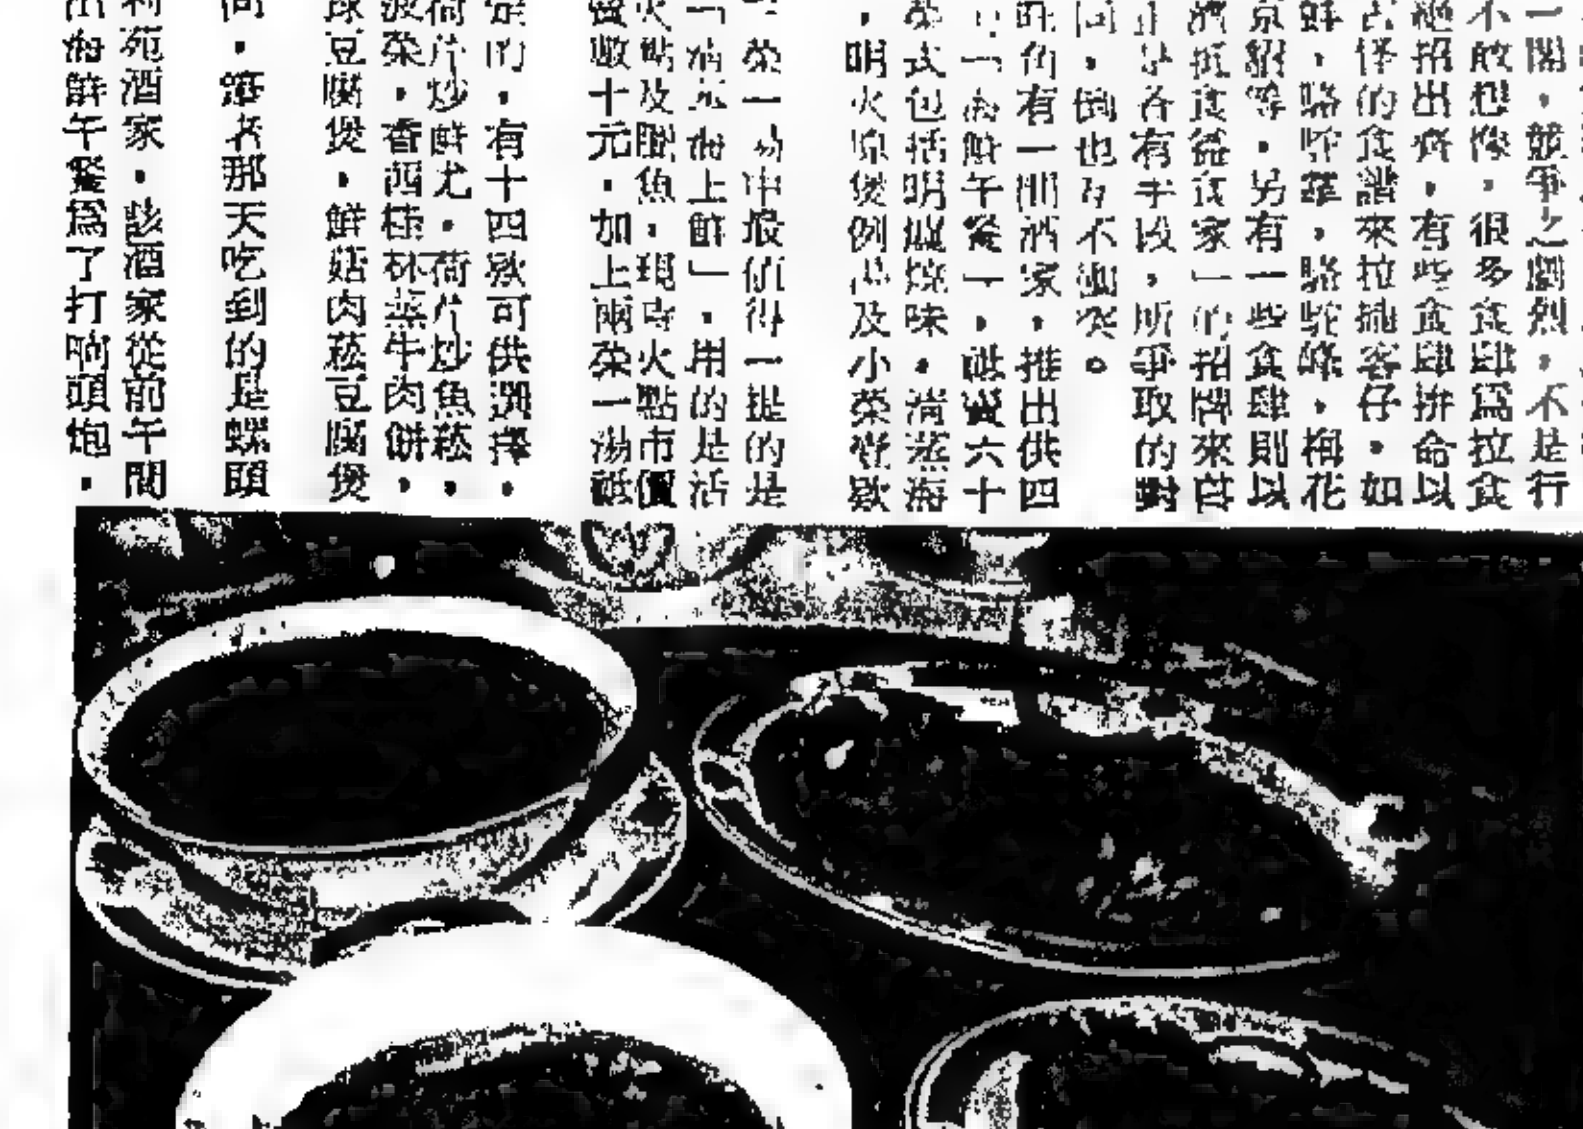 一開，競爭之劇烈，不是行
不敢想像，很多食肆爲拉食
絕招出齊，有些食肆拚命以
古怪的食譜來拉攏客仔，如
蚌，駱駝掌，駱駝峰，梅花
京紹等，另有一些食肆則以
濟抵食飽食家」的招牌來
正是各有手段，所爭取的對
同，倒也互不衝突。
旺角有一間酒家，推出供四
「海鮮午餐」，祗賣六十
菜式包括明爐燒味，清蒸海
，明火原煲例湯及小菜壹款
菜一湯中最值得一提的是
「兩元海上鮮」，用的是活
火點及瞓魚，現時火點市價
賣收十元，加上兩菜一湯祗
是的，有十四款可供選擇，
荷片炒鮮尤，荷片炒魚菘，
菠菜，香茜桂林蒸牛肉餅，
球豆腐煲，鮮菇肉菘豆腐煲
同，筆者那天吃到的是螺頭
利苑酒家，該酒家從前午間
出海鮮午餐爲了打响頭炮，